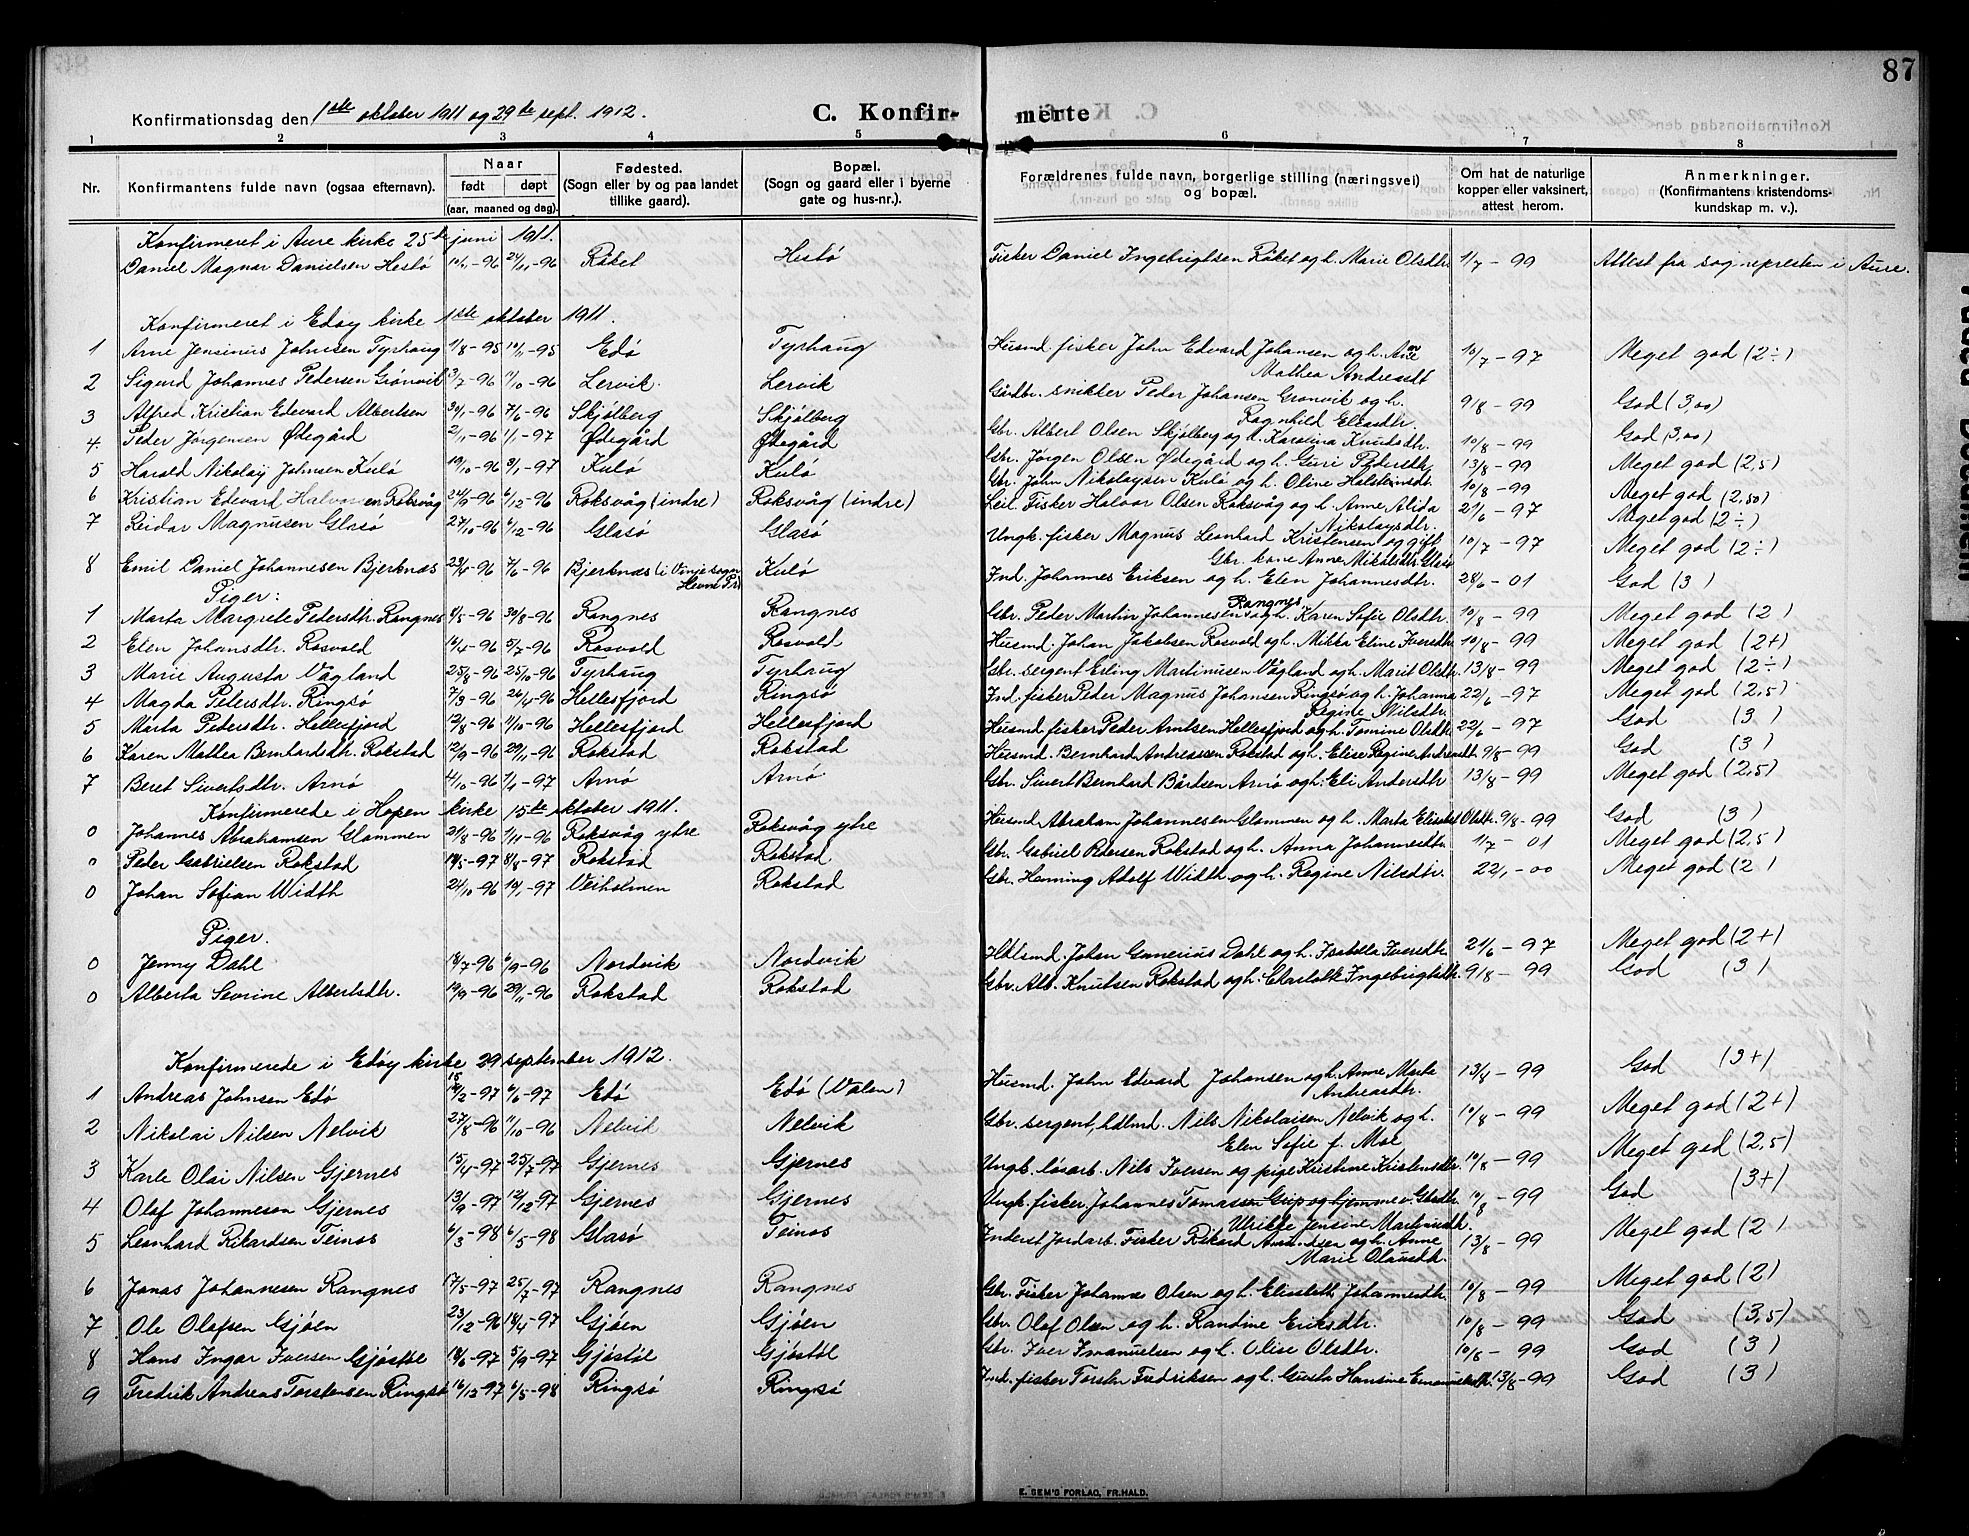 87
Konfirmationsdag den 1ste oktober 1911 og 29de sept. 1912. C. Konfir- merte
1 2 3 4 5 6 7 8
Nr. Konfirmantens fulde navn (ogsaa efternavn). Naar født døpt (aar, maaned og dag). Fødested. (Sogn eller by og paa landet tillike gaard). Bopæl. (Sogn og gaard eller i byerne gate og hus-nr.). Forældrenes fulde navn, borgerlige stilling (næringsvei) og bopæl. Om hat de naturlige kopper eller vaksinert, attest herom. Anmerkninger. (Konfirmantens kristendoms-kundskap m. v.).
Konfirmeret i Aure kirke 25de juni 1911.
Daniel Magnar Danielsen Hestø 10/11-96 24/11-96 Røket Hestø Fisker Daniel Ingebrigtsen Røket og h. Marie Olsdtr. 1/7-99 Attest fra sognepresten i Aure.
Konfirmeret i Edøy kirke 1ste oktober 1911.
1 Arne Jensinus Johnsen Tyrhaug 1/8-95 10/11-95 Edø Tyrhaug Husmd. fisker John Edvard Johansen og h. Anne Mathea Andreasdt 10/7-97 Meget god (2÷)
2 Sigurd Johannes Pedersen Grønvik 13/7-96 11/10-96 Lervik Lervik Gårdbr. snikker Peder Johansen Grønvik og h. Ragnhild Eliasdtr. 9/8-99 God (3,00)
3 Alfred Kristian Edevard Albertsen 30/1-96 7/6-96 Skjølberg Skjølberg Gbr. Albert Olsen Skjølberg og h. Karolina Knudsdtr. 10/8-99 God (3,00)
4. Peder Jørgensen Ødegård 2/11-96 1/1-97 Ødegård Ødegård Gbr. Jörgen Olsen Ødegård og h. Guri Pedersdtr. 13/8-99 Meget god (2,5)
5 Harald Nikolay Johnsen Kulø 19/10-96 3/1-97 Kulø Kulø Gbr. John Nikolaysen Kulø og h. Oline Halsteinsdt. 10/8-99 Meget god (2,50)
6 Kristian Edevard Halvorsen Roksvåg 24/9-96 6/12-96 Roksvåg (indre) Roksvåg (indre) Leil. Fisker Halvor Olsen Roksvåg og h. Anne Alida Nikolaysdtr. 21/6-97 Meget god (2÷)
7 Reidar Magnusen Glasø 27/10-96 6/12-96 Glasø Glasø Ungk. fisker Magnus Leonhard Kristensen og gift Gbr. kone Anne Nikolsdtr. Glasø 10/7-97 Meget god (2÷)
8 Emil Daniel Johannesen Bjerknæs 23/4-96 7/6-96 Bjerknæs (i Vinje sogn Hevne Pr.) Kulø Ind. Johannes Eriksen og h. Elen Johannesdtr. 28/6-01 God (3)
Piger:
1 Marta Margrete Pedersdtr. Rangnes 8/5-96 30/8-96 Rangnes Rangnes Gbr. Peder Martin Johannesen Rangnes og h. Karen Sofie Olsdtr. 10/8-99 Meget god (2)
2 Elen Johansdtr. Rosvold 14/4-96 5/7-96 Rosvold Rosvold Husmd. Johan Jakobsen Rosvold og h. Mikka Eline Iversdtr. 10/8-99 Meget god (2+)
3 Marie Augusta Vågland 25/8-96 25/10-96 Tyrhaug Tyrhaug Gbr. sergent Erling Martinusen Vågland og h. Marit Olsdtr. 13/8-99 Meget god (2÷)
4 Magda Petersdtr. Ringsø 7/3-96 26/4-96 Hellesfjord Ringsø Ind. fisker Peder Magnus Johansen Ringsø og h. Johanna Regine Nilsdtr. 22/6-97 Meget god (2,5)
5 Marta Pedersdtr. Hellesfjord 12/8-96 11/10-96 Hellesfjord Hellesfjord Husmd. fisker Peder Arntsen Hellesfjord og h. Tomine Olsdtr. 22/6-97 God (3)
6 Karen Mathea Bernhardsdtr. Rokstad 12/9-96 29/11-96 Rokstad Rokstad Husmd. Bernhard Andreassen Rokstad og h. Elise Regine Andreasdt. 9/8-99 God (3)
7 Beret Sivertsdtr. Arnø 4/10-96 1/1-97 Arnø Arnø Gbr. Sivert Bernhard Bårdsen Arnø og h. Eli Andersdtr 13/8-99 Meget god (2,5)
Konfirmerede i Hopen kirke 15de oktober 1911.
0 Johannes Abrahamsen Glammen 21/8-96 1/11-96 Roksvåg ytre Roksvåg ytre Husmd Abraham Johannesen Glammen og h. Marta Elisabet Olsdtr. 9/8-99 God (3)
0 Peder Gabrielsen Rokstad 14/5-97 8/8-97 Rokstad Rokstad Gbr. Gabriel Pedersen Rokstad og h. Anna Johannesdtr. 1/7-01 Meget god (2,5)
0 Johan Sofian Width 24/10-96 19/1-97 Veiholmen Rokstad Gbr. Henning Adolf Width og h. Regine Nilsdtr. 22/1-00 Meget god (2)
Piger.
0 Jenny Dahl 18/7-96 6/9-96 Nordvik Nordvik Hdlsmd. Johan Gunerius Dahl og h. Isabella Iversdtr. 21/6-97 Meget god (2+)
0 Alberta Severine Albertsdtr. 19/9-96 29/11-96 Rokstad Rokstad Gbr. Alb. Knutsen Rokstad og h. Charlotte Ingebrigtsdtr. 9/8-99 God (3)
Konfirmerede i Edøy kirke 29 september 1912.
1 Andreas Johnsen Edø 2-97 6/6-97 Edø Edø (Valen) Husmd. John Edvard Johansen og h. Anne Marta Andreasdtr. 13/8-99 God (3+)
2 Nikolai Nilsen Nelvik 27/8-96 11/10-96 Nelvik Nelvik Gbr. sergent, hdlmd. Nils Nikolaisen Nelvik og h. Elen Sofie f. Moe 10/8-99 Meget god (2+)
3 Karle Olai Nilsen Gjernes 15/4-97 25/7-97 Gjernes Gjernes Ungk. løsarb. Nils Iversen og pige Kristine Kristensdtr. 10/8-99 Meget god (2,5)
4 Olaf Johannesen Gjernes 13/9-97 12/12-97 Gjernes Gjernes Ungk. fisker Johannes Tomassen Grip og hjemmev. Gbrdtr. Ulrikke Jensine Martinsdtr. 10/8-99 God (3+)
5 Leonhard Rikardsen Teinos 6/3-98 6/5-98 Glasø Teinos Inderst Jordarb. Fisker Rikard Amundsen og h. Anne Marie Olausdtr. 13/8-99 Meget god (2)
6 Jonas Johannesen Rangnes 17/5-97 25/7-97 Rangnes Rangnes Gbr. Fisker Johannes Olsen og h. Elisabeth Johannesdtr. 10/8-99 Meget god (2)
7 Ole Olafsen Gjøen 23/12-96 18/4-97 Gjøen Gjøen Gbr Olaf Olsen og h. Randine Eriksdtr. 10/8-99 God (3,5)
8 Hans Ingar Iversen Gjøstøl 18/6-97 5/9-97 Gjøstøl Gjøstøl Gbr. Iver Imanuelsen og h. Olise Olsdtr. 10/8-99 God (3)
9 Fredrik Andreas Torstensen Ringsø 16/12-97 6/5-98 Ringsø Ringsø Ind. fisker Torsten Fredriksen og h. Gusta Hansine 13/8-99 God (3)
E. SEM'S FORLAG, FR.HALD.